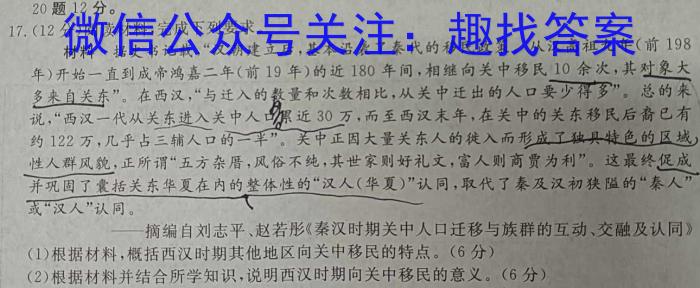 20题12分。
微信公众号关注：趣找答案
17.(12分)阅读材料，完成下列要求。
材料 据史书记载，“汉朝建立后，基本沿袭秦代的移民政策，从汉高祖九年(前198
年)开始一直到成帝鸿嘉二年(前19年)的近180年间，相继向关中移民10余次，其对象大
多来自关东”。在西汉，“与迁入的数量和次数相比，从关中迁出的人口要少得多”。总的来
说，“西汉一代从关东进入关中人口累近30万，而至西汉末年，在关中的关东移民后裔已有
约122万，几乎占三辅人口的一半”。关中正因大量关东人的徙入而形成了独具特色的区域
性人群风貌，正所谓“五方杂厝，风俗不纯，其世家则好礼文，富人则商贾为利”。这最终促成
并巩固了囊括关东华夏在内的整体性的“汉人(华夏)”认同，取代了秦及汉初狭隘的“秦人”
或“汉人”认同。
——摘编自刘志平、赵若彤《秦汉时期关中人口迁移与族群的互动、交融及认同》
(1)根据材料，概括西汉时期其他地区向关中移民的特点。(6分)
(2)根据材料并结合所学知识，说明西汉时期向关中移民的意义。(6分)